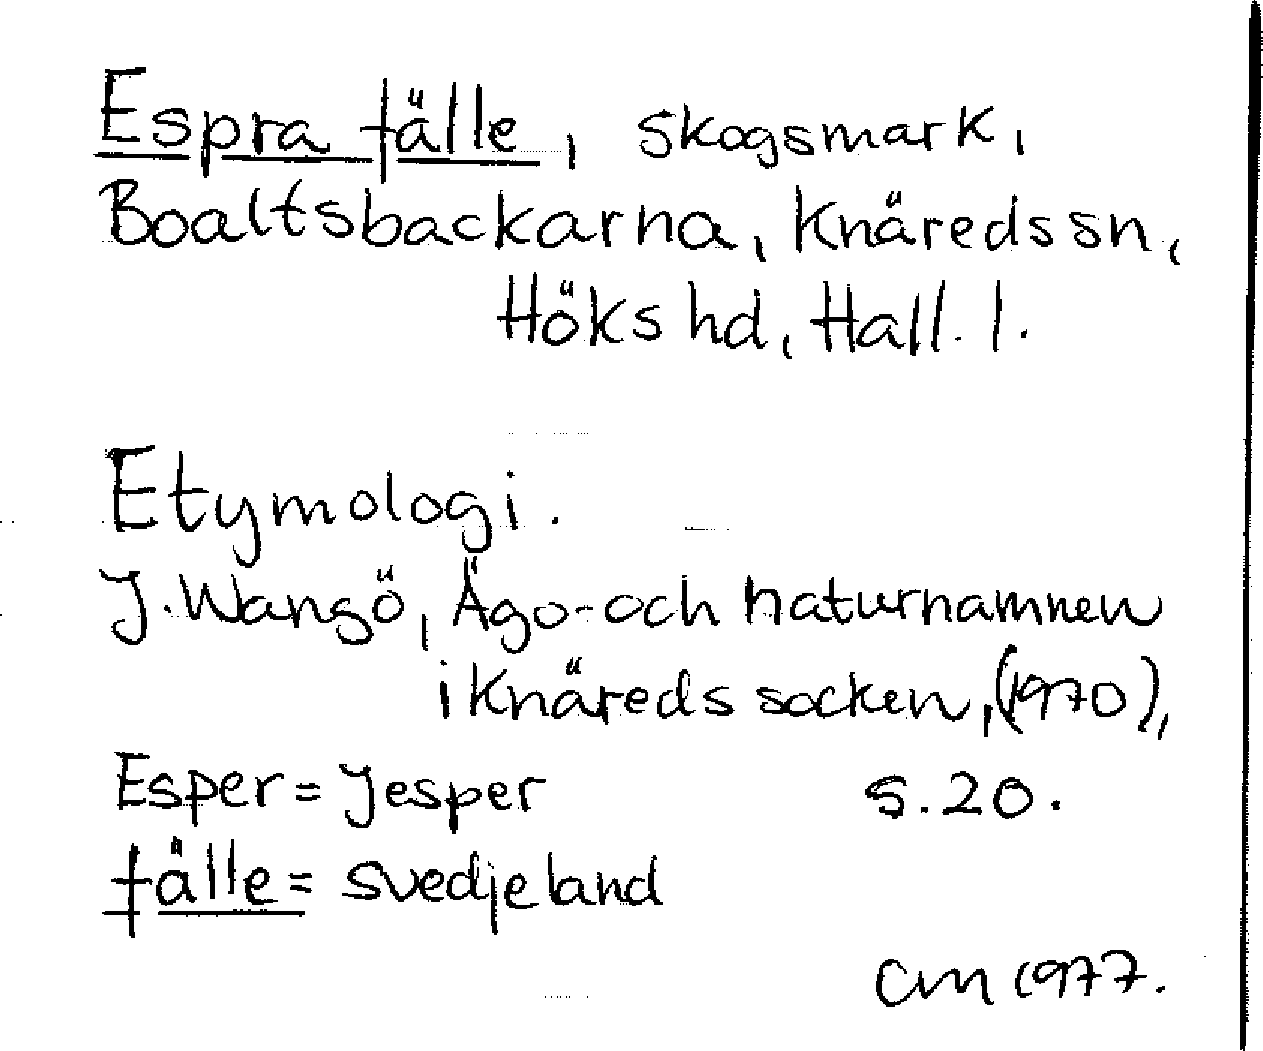 Espra fälle, skogsmark,
Boaltsbackarna, Knäreds sn,
Höks hd, Hall. l.
Etymologi.
J. Wangö, Ägo- och naturnamnen
i Knäreds socken, (1970),
Esper = Jesper s. 20.
fälle = svedjeland
CM 1977.